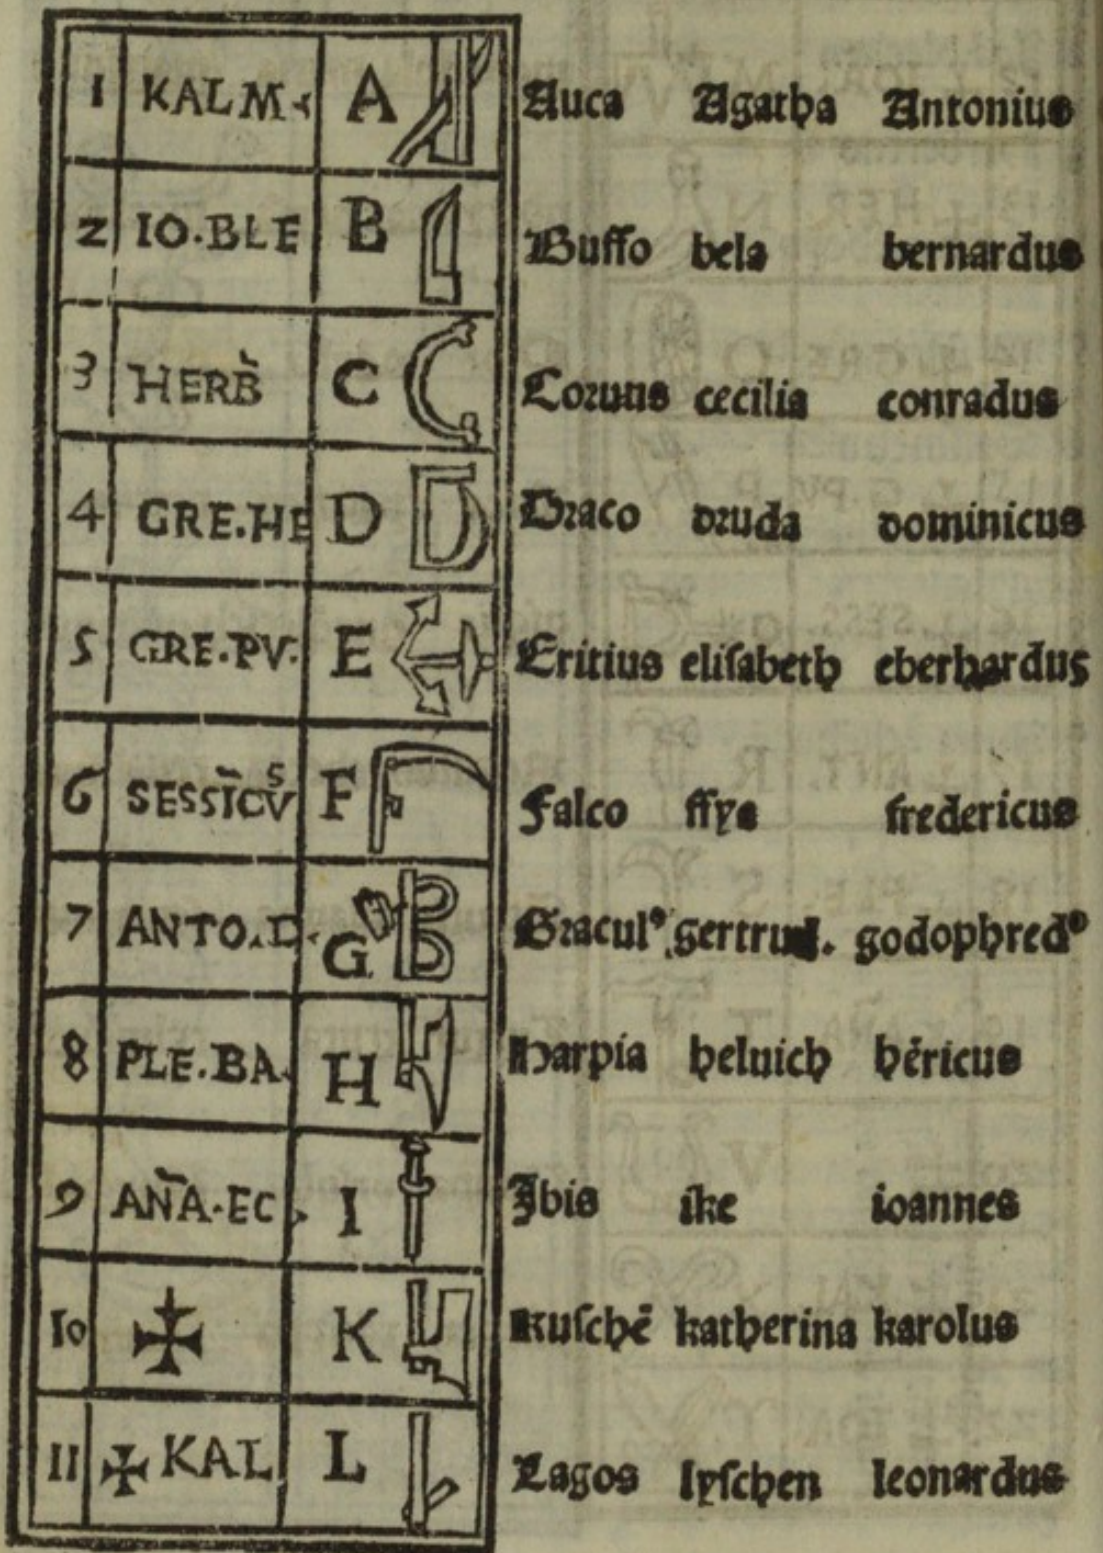 1 KALM A Auca Agatha Antonius
2 IO.BLE B Buffo bela bernardus
3 HERB̀ C Coruus cecilia conradus
4 GRE.HE D Draco druda dominicus
5 GRE.PV. E Eritius eliſabeth eberhardus
6 SESSIC̄Vˢ F Falco ffye fredericus
7 ANTO.D. G Graculꝰ gertrud. godophredꝰ
8 PLE.BA. H Harpia heluich hēricus
9 AÑA.EC I Ibis ike ioannes
10 ✠ K Kuſchē katherina karolus
11 ✠ KAL L Lagos lyſchen leonardus